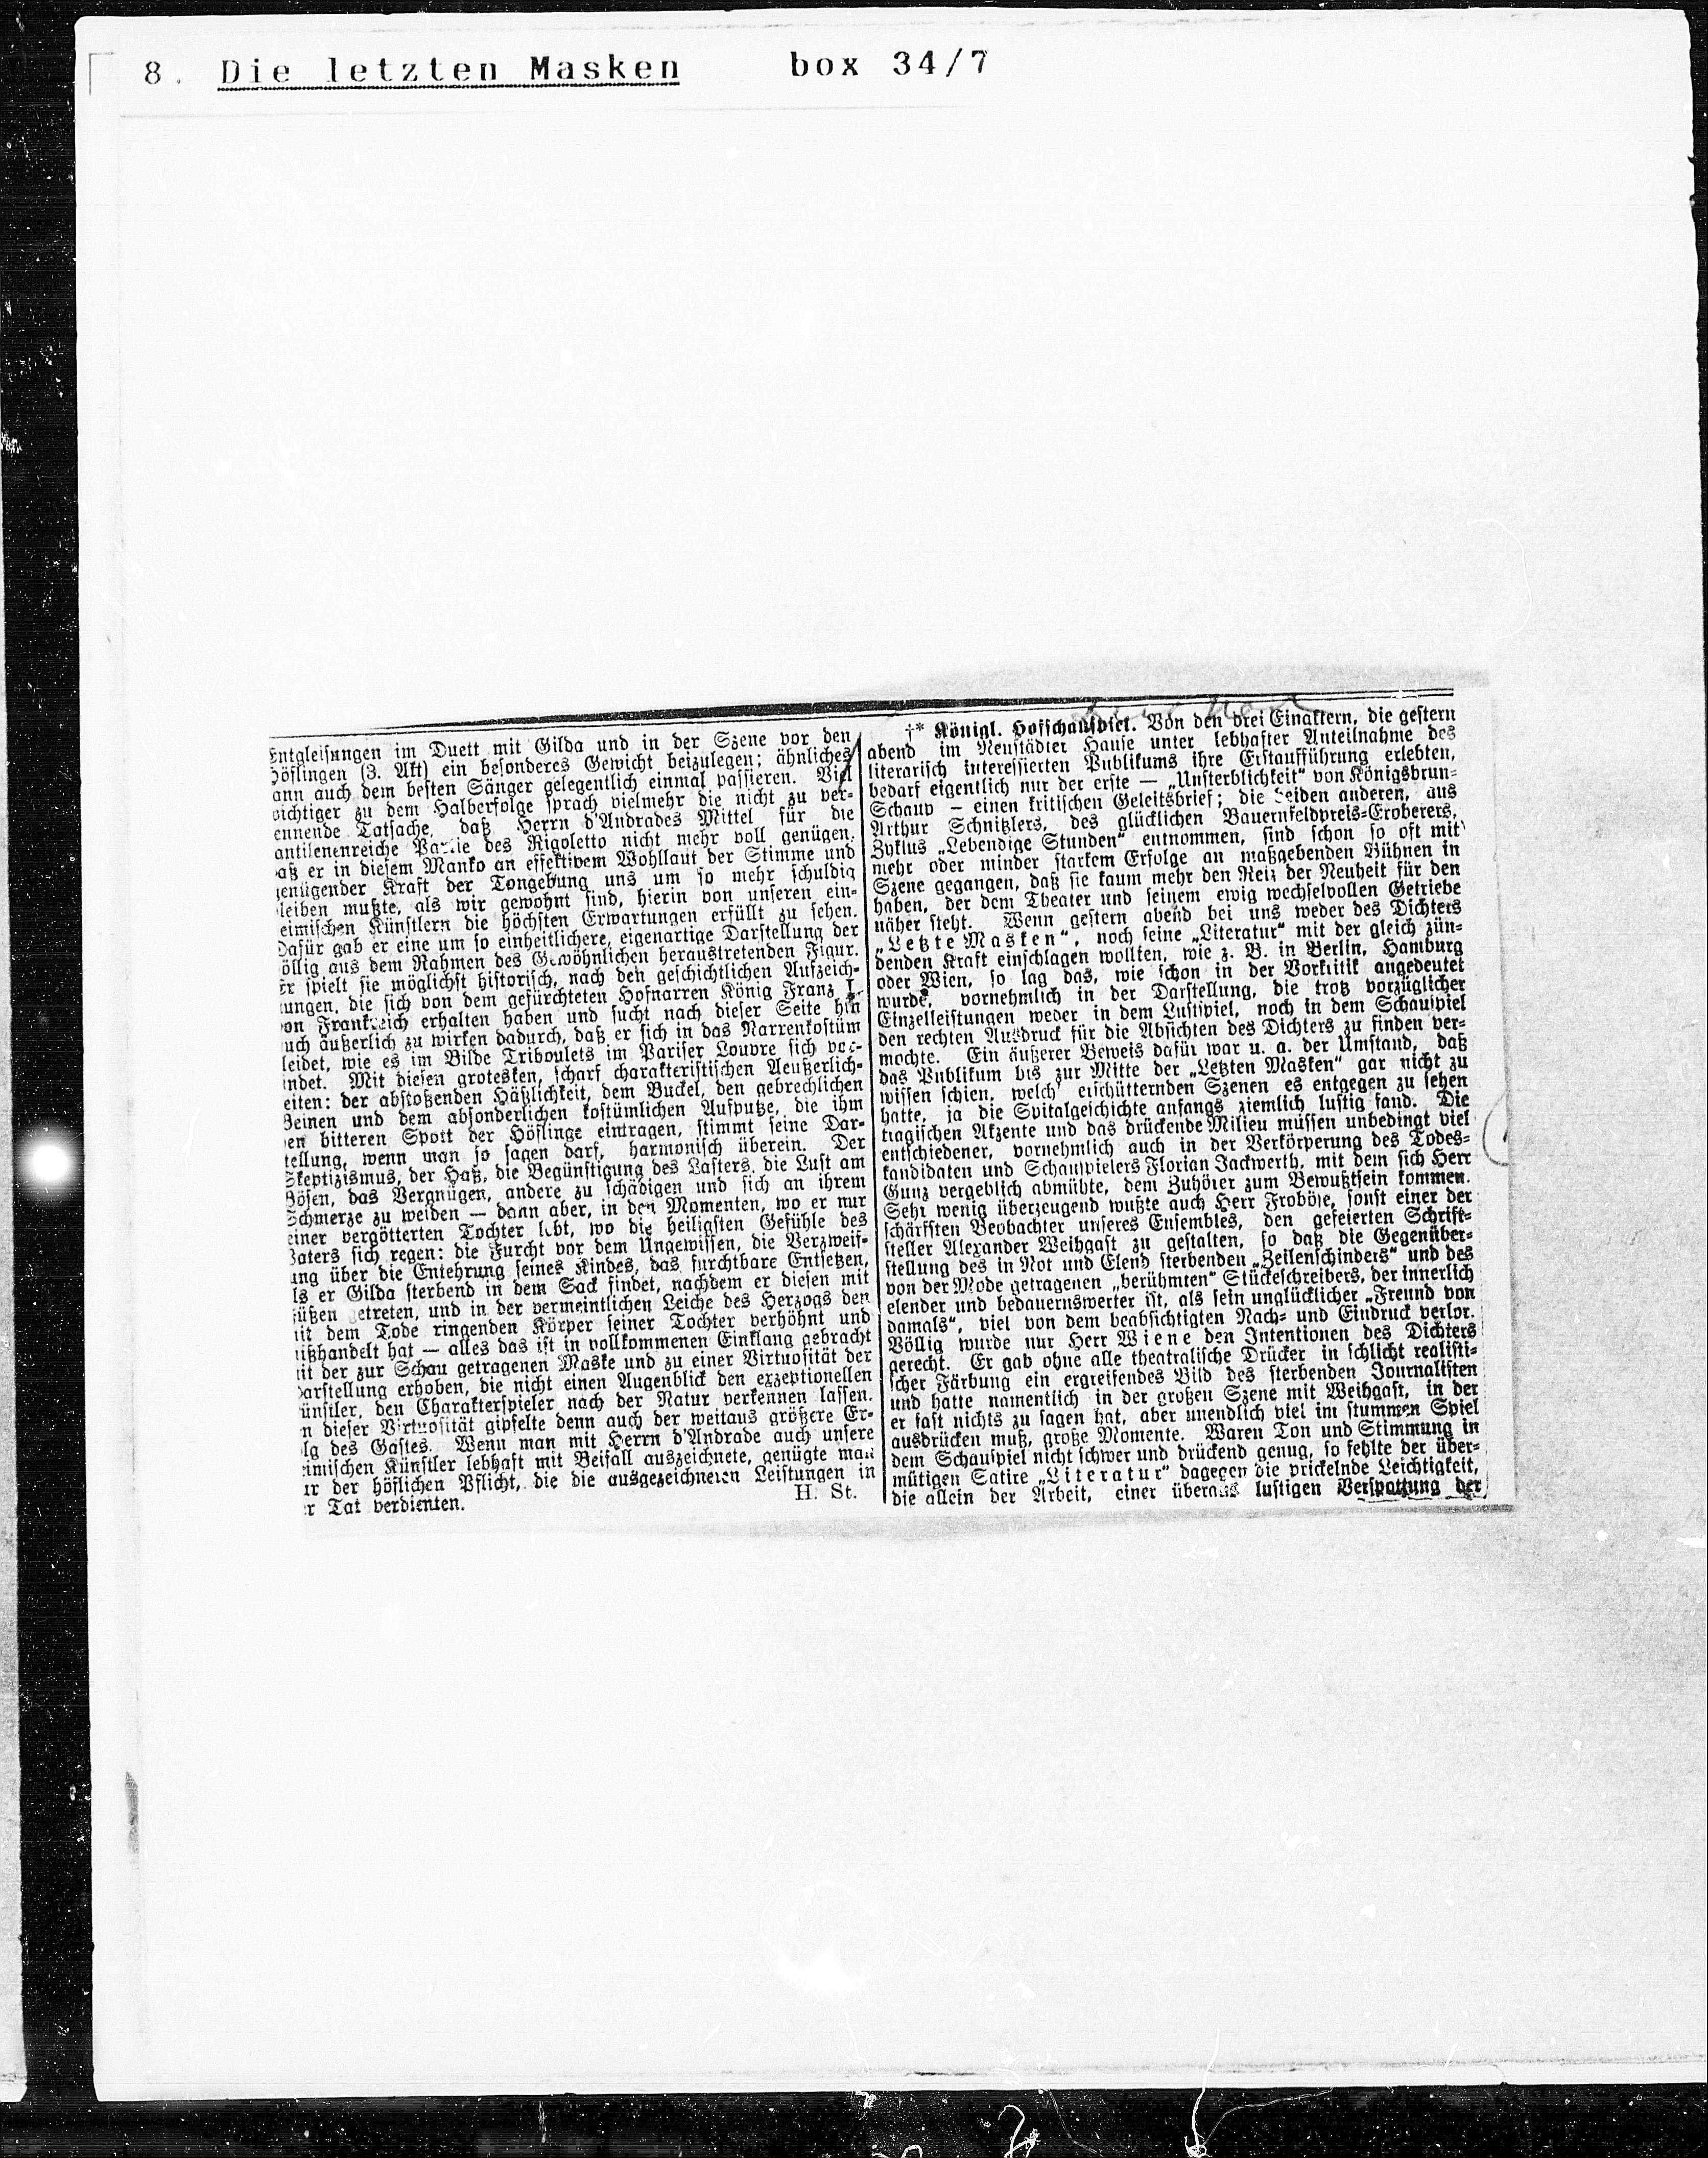 8. Die letzten Masken box 34/7
Entgleisungen im Duett mit Gilda und in der Szene vor den
Höflingen (3. Akt) ein besonderes Gewicht beizulegen; ähnliches
ann auch dem besten Sänger gelegentlich einmal passieren. Viel
wichtiger zu dem Halberfolge sprach vielmehr die nicht zu ver-
ennende Tatsache, daß Herrn d'Andrades Mittel für die
antilenenreiche Partie des Rigoletto nicht mehr voll genügen.
aß er in diesem Manko an effektivem Wohllaut der Stimme und
genügender Kraft der Tongebung uns um so mehr schuldig
leiben mußte, als wir gewohnt sind, hierin von unseren ein-
eimischen Künstlern die höchsten Erwartungen erfüllt zu sehen.
Dafür gab er eine um so einheitlichere, eigenartige Darstellung der
öllig aus dem Rahmen des Gewöhnlichen heraustretenden Figur.
Er spielt sie möglichst historisch, nach den geschichtlichen Aufzeich-
ungen, die sich von dem gefürchteten Hofnarren König Franz I.
on Frankreich erhalten haben und sucht nach dieser Seite hin
uch äußerlich zu wirken dadurch, daß er sich in das Narrenkostüm
leidet, wie es im Bilde Triboulets im Pariser Louvre sich vor-
indet. Mit diesen grotesken, scharf charakteristischen Aeußerlich-
eiten: der abstoßenden Häßlichkeit, dem Buckel, den gebrechlichen
Beinen und dem absonderlichen kostümlichen Aufputze, die ihm
en bitteren Spott der Höflinge eintragen, stimmt seine Dar-
tellung, wenn man so sagen darf, harmonisch überein. Der
Skeptizismus, der Haß, die Begünstigung des Lasters, die Lust am
Bösen, das Vergnügen, andere zu schädigen und sich an ihrem
Schmerze zu weiden — dann aber, in den Momenten, wo er nur
einer vergötterten Tochter lebt, wo die heiligsten Gefühle des
Vaters sich regen: die Furcht vor dem Ungewissen, die Verzweif-
ung über die Entehrung seines Kindes, das furchtbare Entsetzen,
ls er Gilda sterbend in dem Sack findet, nachdem er diesen mit
üßen getreten, und in der vermeintlichen Leiche des Herzogs den
it dem Tode ringenden Körper seiner Tochter verhöhnt und
ißhandelt hat — alles das ist in vollkommenen Einklang gebracht
it der zur Schau getragenen Maske und zu einer Virtuosität der
arstellung erhoben, die nicht einen Augenblick den exzeptionellen
ünstler, den Charakterspieler nach der Natur verkennen lassen.
n dieser Virtuosität gipfelte denn auch der weitaus größere Er-
lg des Gastes. Wenn man mit Herrn d'Andrade auch unsere
imischen Künstler lebhaft mit Beifall auszeichnete, genügte man
ur der höflichen Pflicht, die die ausgezeichneten Leistungen in
er Tat verdienten. H. St.
†* Königl. Hofschauspiel. Von den drei Einaktern, die gestern
abend im Neustädter Hause unter lebhafter Anteilnahme des
literarisch interessierten Publikums ihre Erstaufführung erlebten,
bedarf eigentlich nur der erste — „Unsterblichkeit“ von Königsbrun-
Schaup — einen kritischen Geleitsbrief; die beiden anderen, aus
Arthur Schnitzlers, des glücklichen Bauernfeldpreis-Eroberers,
Zyklus „Lebendige Stunden“ entnommen, sind schon so oft mit
mehr oder minder starkem Erfolge an maßgebenden Bühnen in
Szene gegangen, daß sie kaum mehr den Reiz der Neuheit für den
haben, der dem Theater und seinem ewig wechselvollen Getriebe
näher steht. Wenn gestern abend bei uns weder des Dichters
„Letzte Masken“, noch seine „Literatur“ mit der gleich zün-
denden Kraft einschlagen wollten, wie z. B. in Berlin, Hamburg
oder Wien, so lag das, wie schon in der Vorkritik angedeutet
wurde, vornehmlich in der Darstellung, die trotz vorzüglicher
Einzelleistungen weder in dem Lustspiel, noch in dem Schauspiel
den rechten Ausdruck für die Absichten des Dichters zu finden ver-
mochte. Ein äußerer Beweis dafür war u. a. der Umstand, daß
das Publikum bis zur Mitte der „Letzten Masken“ gar nicht zu
wissen schien, welch' erschütternden Szenen es entgegen zu sehen
hatte, ja die Spitalgeschichte anfangs ziemlich lustig fand. Die
tragischen Akzente und das drückende Milieu müssen unbedingt viel
entschiedener, vornehmlich auch in der Verkörperung des Todes-
kandidaten und Schauspielers Florian Jackwerth, mit dem sich Herr
Gunz vergeblich abmühte, dem Zuhörer zum Bewußtsein kommen.
Sehr wenig überzeugend wußte auch Herr Froböse, sonst einer der
schärfsten Beobachter unseres Ensembles, den gefeierten Schrift-
steller Alexander Weihgast zu gestalten, so daß die Gegenüber-
stellung des in Not und Elend sterbenden „Zeilenschinders“ und des
von der Mode getragenen „berühmten“ Stückeschreibers, der innerlich
elender und bedauernswerter ist, als sein unglücklicher „Freund von
damals“, viel von dem beabsichtigten Nach- und Eindruck verlor.
Völlig wurde nur Herr Wiene den Intentionen des Dichters
gerecht. Er gab ohne alle theatralische Drücker in schlicht realisti-
scher Färbung ein ergreifendes Bild des sterbenden Journalisten
und hatte namentlich in der großen Szene mit Weihgast, in der
er fast nichts zu sagen hat, aber unendlich viel im stummen Spiel
ausdrücken muß, große Momente. Waren Ton und Stimmung in
dem Schauspiel nicht schwer und drückend genug, so fehlte der über-
mütigen Satire „Literatur“ dagegen die prickelnde Leichtigkeit,
die allein der Arbeit, einer überaus lustigen Verspottung der